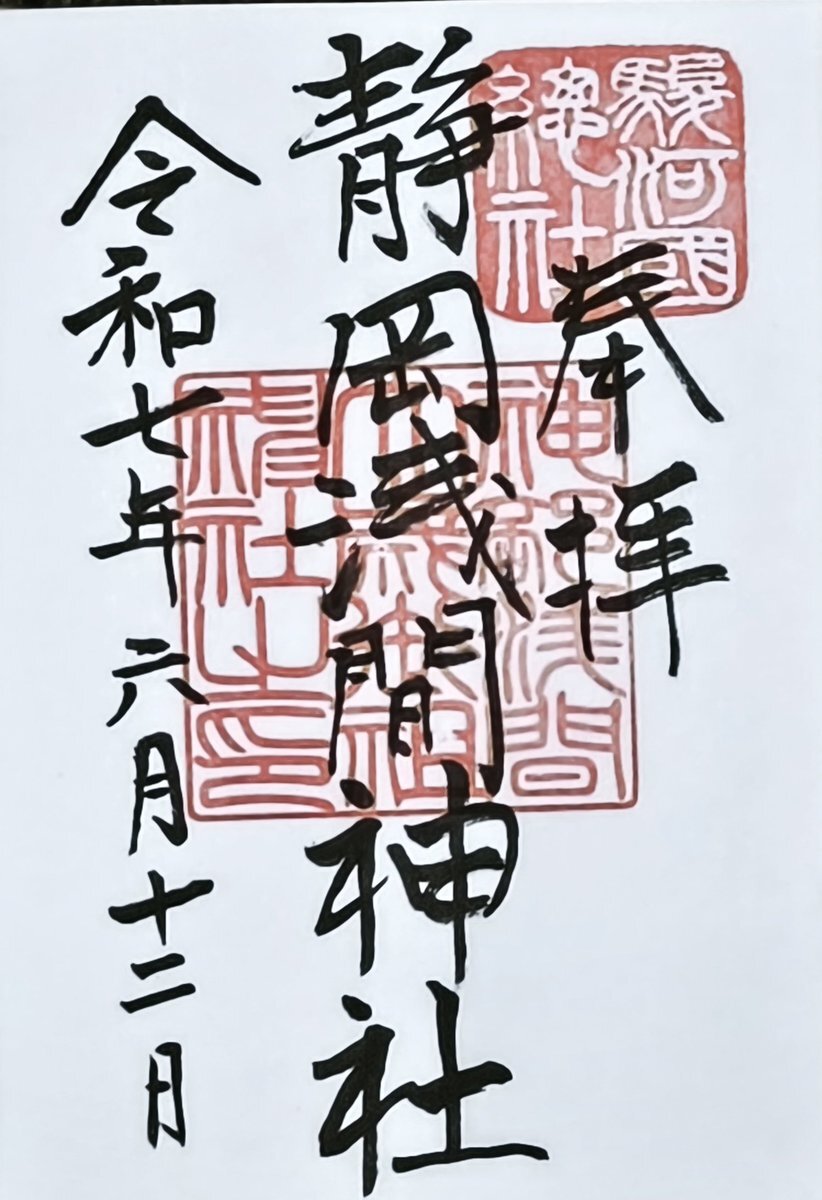 駿河國
總社
奉拝
静岡浅間神社
神部淺間
大歳御祖
神社之印
令和七年六月十二日